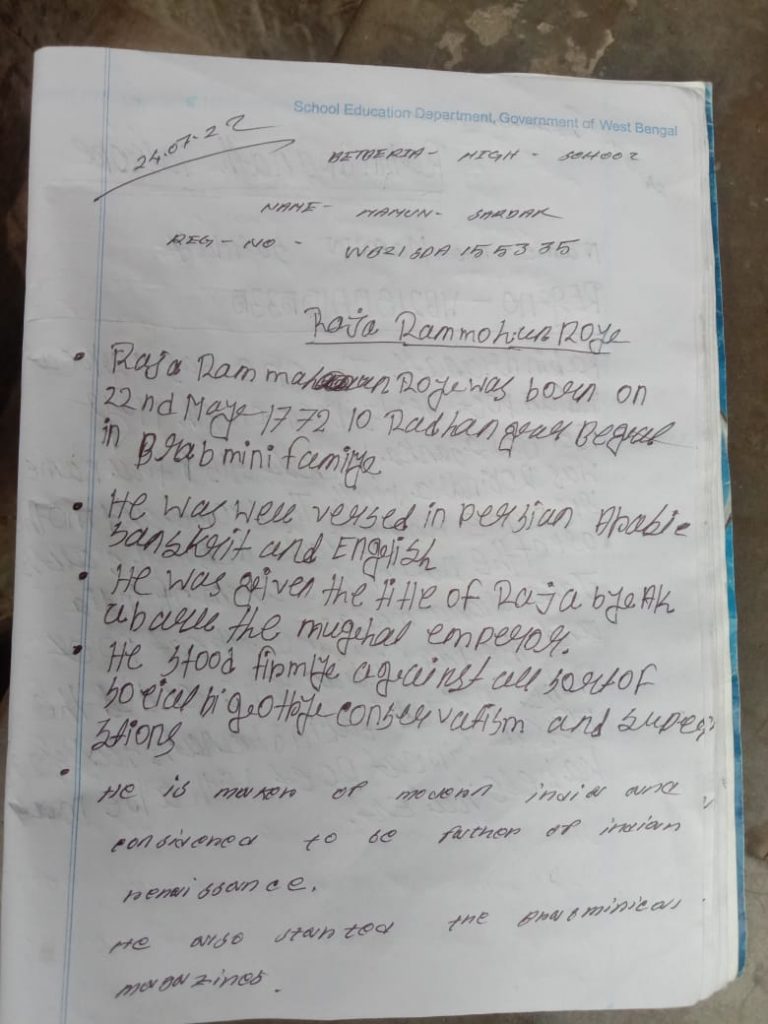 School Education Department, Government of West Bengal
24.07.22
BETBERIA - HIGH - SCHOOL
NAME - MAMUN - SARDAR
REG - NO - WB21SDA155335
Raja Rammohun Roye
• Raja Ram mahan Roye was born on
22nd Maye 1772 10 Radhangar Begral
in Brabmini familye
• He was well versed in persian Arabic
Sanskrit and English
• He was geiven the title of Raja bye Ak
abaru the mughal emperor.
• He stood firmlye against all sort of
social bigeottrye conservatism and supers
stions
• He is maker of modern india and
considered to be father of indian
renaissance.
He also started the Brabminical
magazines.